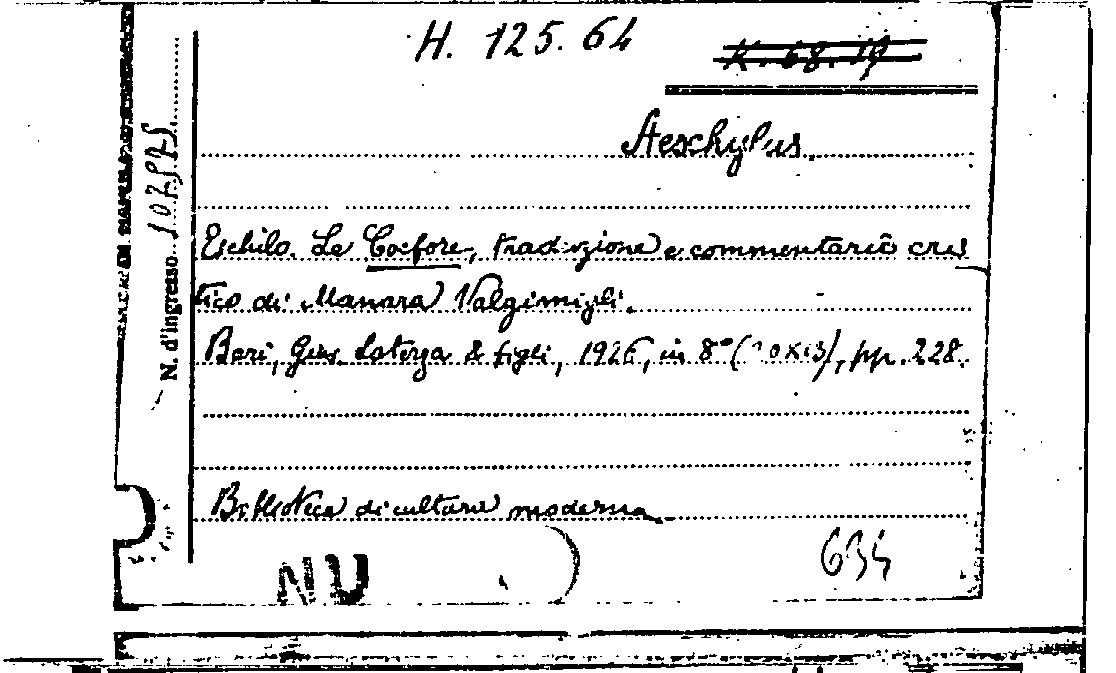 H. 125.64
K. 68. 19
Aeschylus.
Eschilo. Le Coefore, traduzione e commentario cri
tico di Manara Valgimigli.
Bari, Gius. Laterza & figli, 1926, in 8° (20x13), pp. 228.
Biblioteca di cultura moderna.
634
NU
N. d'ingresso